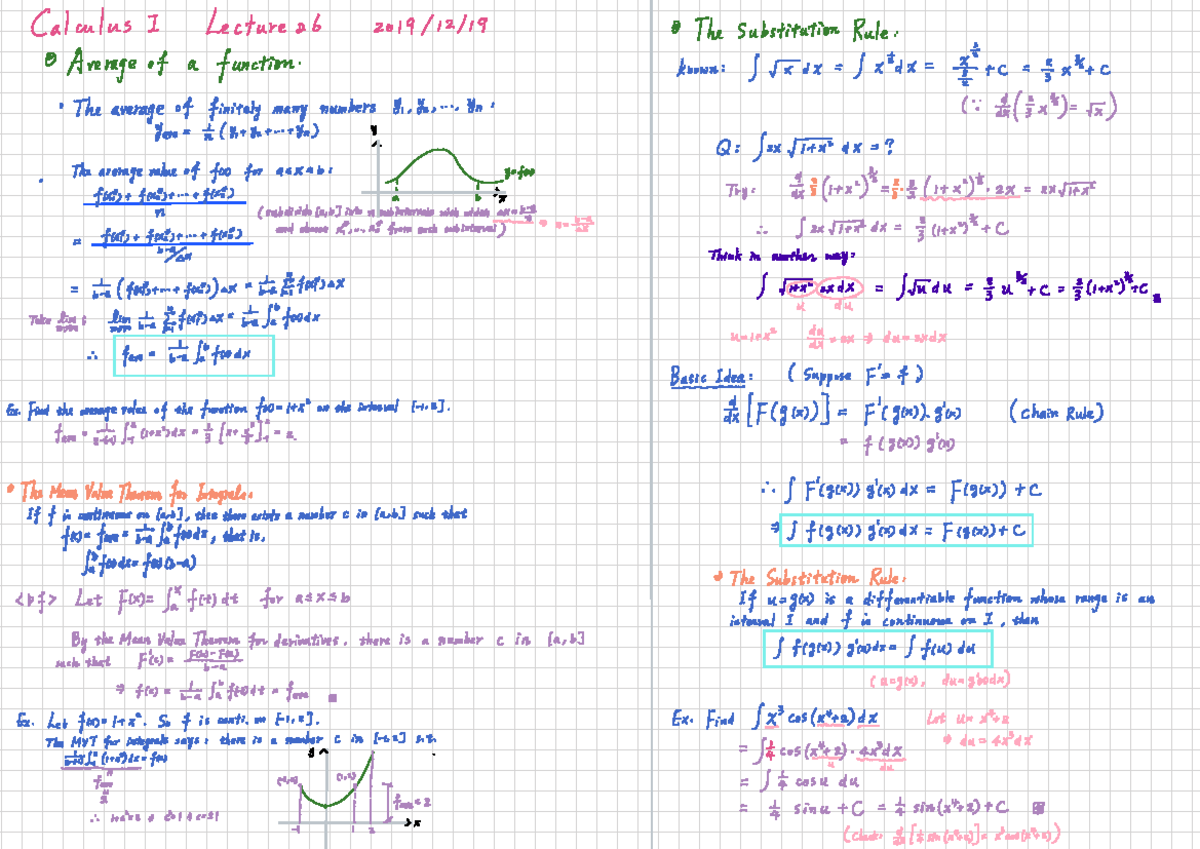 Calculus I Lecture 26 2019/12/19
Average of a function.
The average of finitely many numbers y₁, y₂, ..., yₙ :
y_ave = 1/n (y₁+y₂+...+yₙ)
The average value of f(x) for a≤x≤b:
(f(x₁*)+f(x₂*)+...+f(xₙ*))/n
y y=f(x) a b x
(subdivide [a,b] into n subintervals with width Δx=(b-a)/n ⇒ n=(b-a)/Δx
and choose x₁*,...,xₙ* from each subinterval)
= (f(x₁*)+f(x₂*)+...+f(xₙ*))/((b-a)/Δx)
= 1/(b-a) (f(x₁*)+...+f(xₙ*))Δx = 1/(b-a) Σ f(xᵢ*)Δx
Take lim n→∞ : lim n→∞ 1/(b-a) Σ f(xᵢ*)Δx = 1/(b-a) ∫ₐᵇ f(x)dx
∴ f_ave = 1/(b-a) ∫ₐᵇ f(x)dx
Ex. Find the average value of the function f(x)=1+x² on the interval [-1,2].
f_ave = 1/(2-(-1)) ∫₋₁² (1+x²)dx = 1/3 [x+x³/3]₋₁² = 2.
The Mean Value Theorem for Integrals.
If f is continuous on [a,b], then there exists a number c in [a,b] such that
f(c)= f_ave = 1/(b-a) ∫ₐᵇ f(x)dx, that is,
∫ₐᵇ f(x)dx = f(c)(b-a)
<pf> Let F(x)= ∫ₐˣ f(t)dt for a≤x≤b
By the Mean Value Theorem for derivatives, there is a number c in [a,b]
such that F'(c)= (F(b)-F(a))/(b-a)
⇒ f(c) = 1/(b-a) ∫ₐᵇ f(t)dt = f_ave
Ex. Let f(x)=1+x². So f is conti. on [-1,2].
The MVT for integrals says: there is a number c in [-1,2] s.t.
1/(2-(-1)) ∫₋₁² (1+x²)dx = f(c)
f_ave
2
y (-1,2) (1,2) f_ave=2 -1 1 2 x
The Substitution Rule.
known: ∫ √x dx = ∫ x^(1/2) dx = x^(3/2)/(3/2) + C = 2/3 x^(3/2) + C
(∵ d/dx(2/3 x^(3/2)) = √x)
Q: ∫ 2x √(1+x²) dx = ?
Try: d/dx 2/3 (1+x²)^(3/2) = 2/3 · 3/2 (1+x²)^(1/2) · 2x = 2x√(1+x²)
∴ ∫ 2x √(1+x²) dx = 2/3 (1+x²)^(3/2) + C
Think in another way:
∫ √(1+x²) 2x dx = ∫ √u du = 2/3 u^(3/2) + C = 2/3 (1+x²)^(3/2) + C
u du
u=1+x² du/dx = 2x ⇒ du=2xdx
Basic Idea: (Suppose F'=f)
d/dx [F(g(x))] = F'(g(x))·g'(x) (Chain Rule)
= f(g(x)) g'(x)
∴ ∫ F'(g(x)) g'(x) dx = F(g(x)) + C
⇒ ∫ f(g(x)) g'(x) dx = F(g(x)) + C
The Substitution Rule:
If u=g(x) is a differentiable function whose range is an
interval I and f is continuous on I, then
∫ f(g(x)) g'(x)dx = ∫ f(u) du
(u=g(x), du=g'(x)dx)
Ex. Find ∫ x³ cos(x⁴+2) dx Let u = x⁴+2
⇒ du = 4x³dx
= ∫ 1/4 cos(x⁴+2) · 4x³dx
u du
= ∫ 1/4 cos u du
= 1/4 sin u + C = 1/4 sin(x⁴+2) + C
(Check: d/dx [1/4 sin(x⁴+2)] = x³cos(x⁴+2))